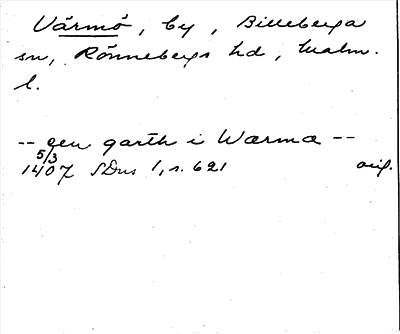 Värmö, by, Billeberga
sn, Rönnebergs hd, Malm.
l.
-- gen garth i Wærmа --
5/3
1407 SDns 1, s. 621 orig.